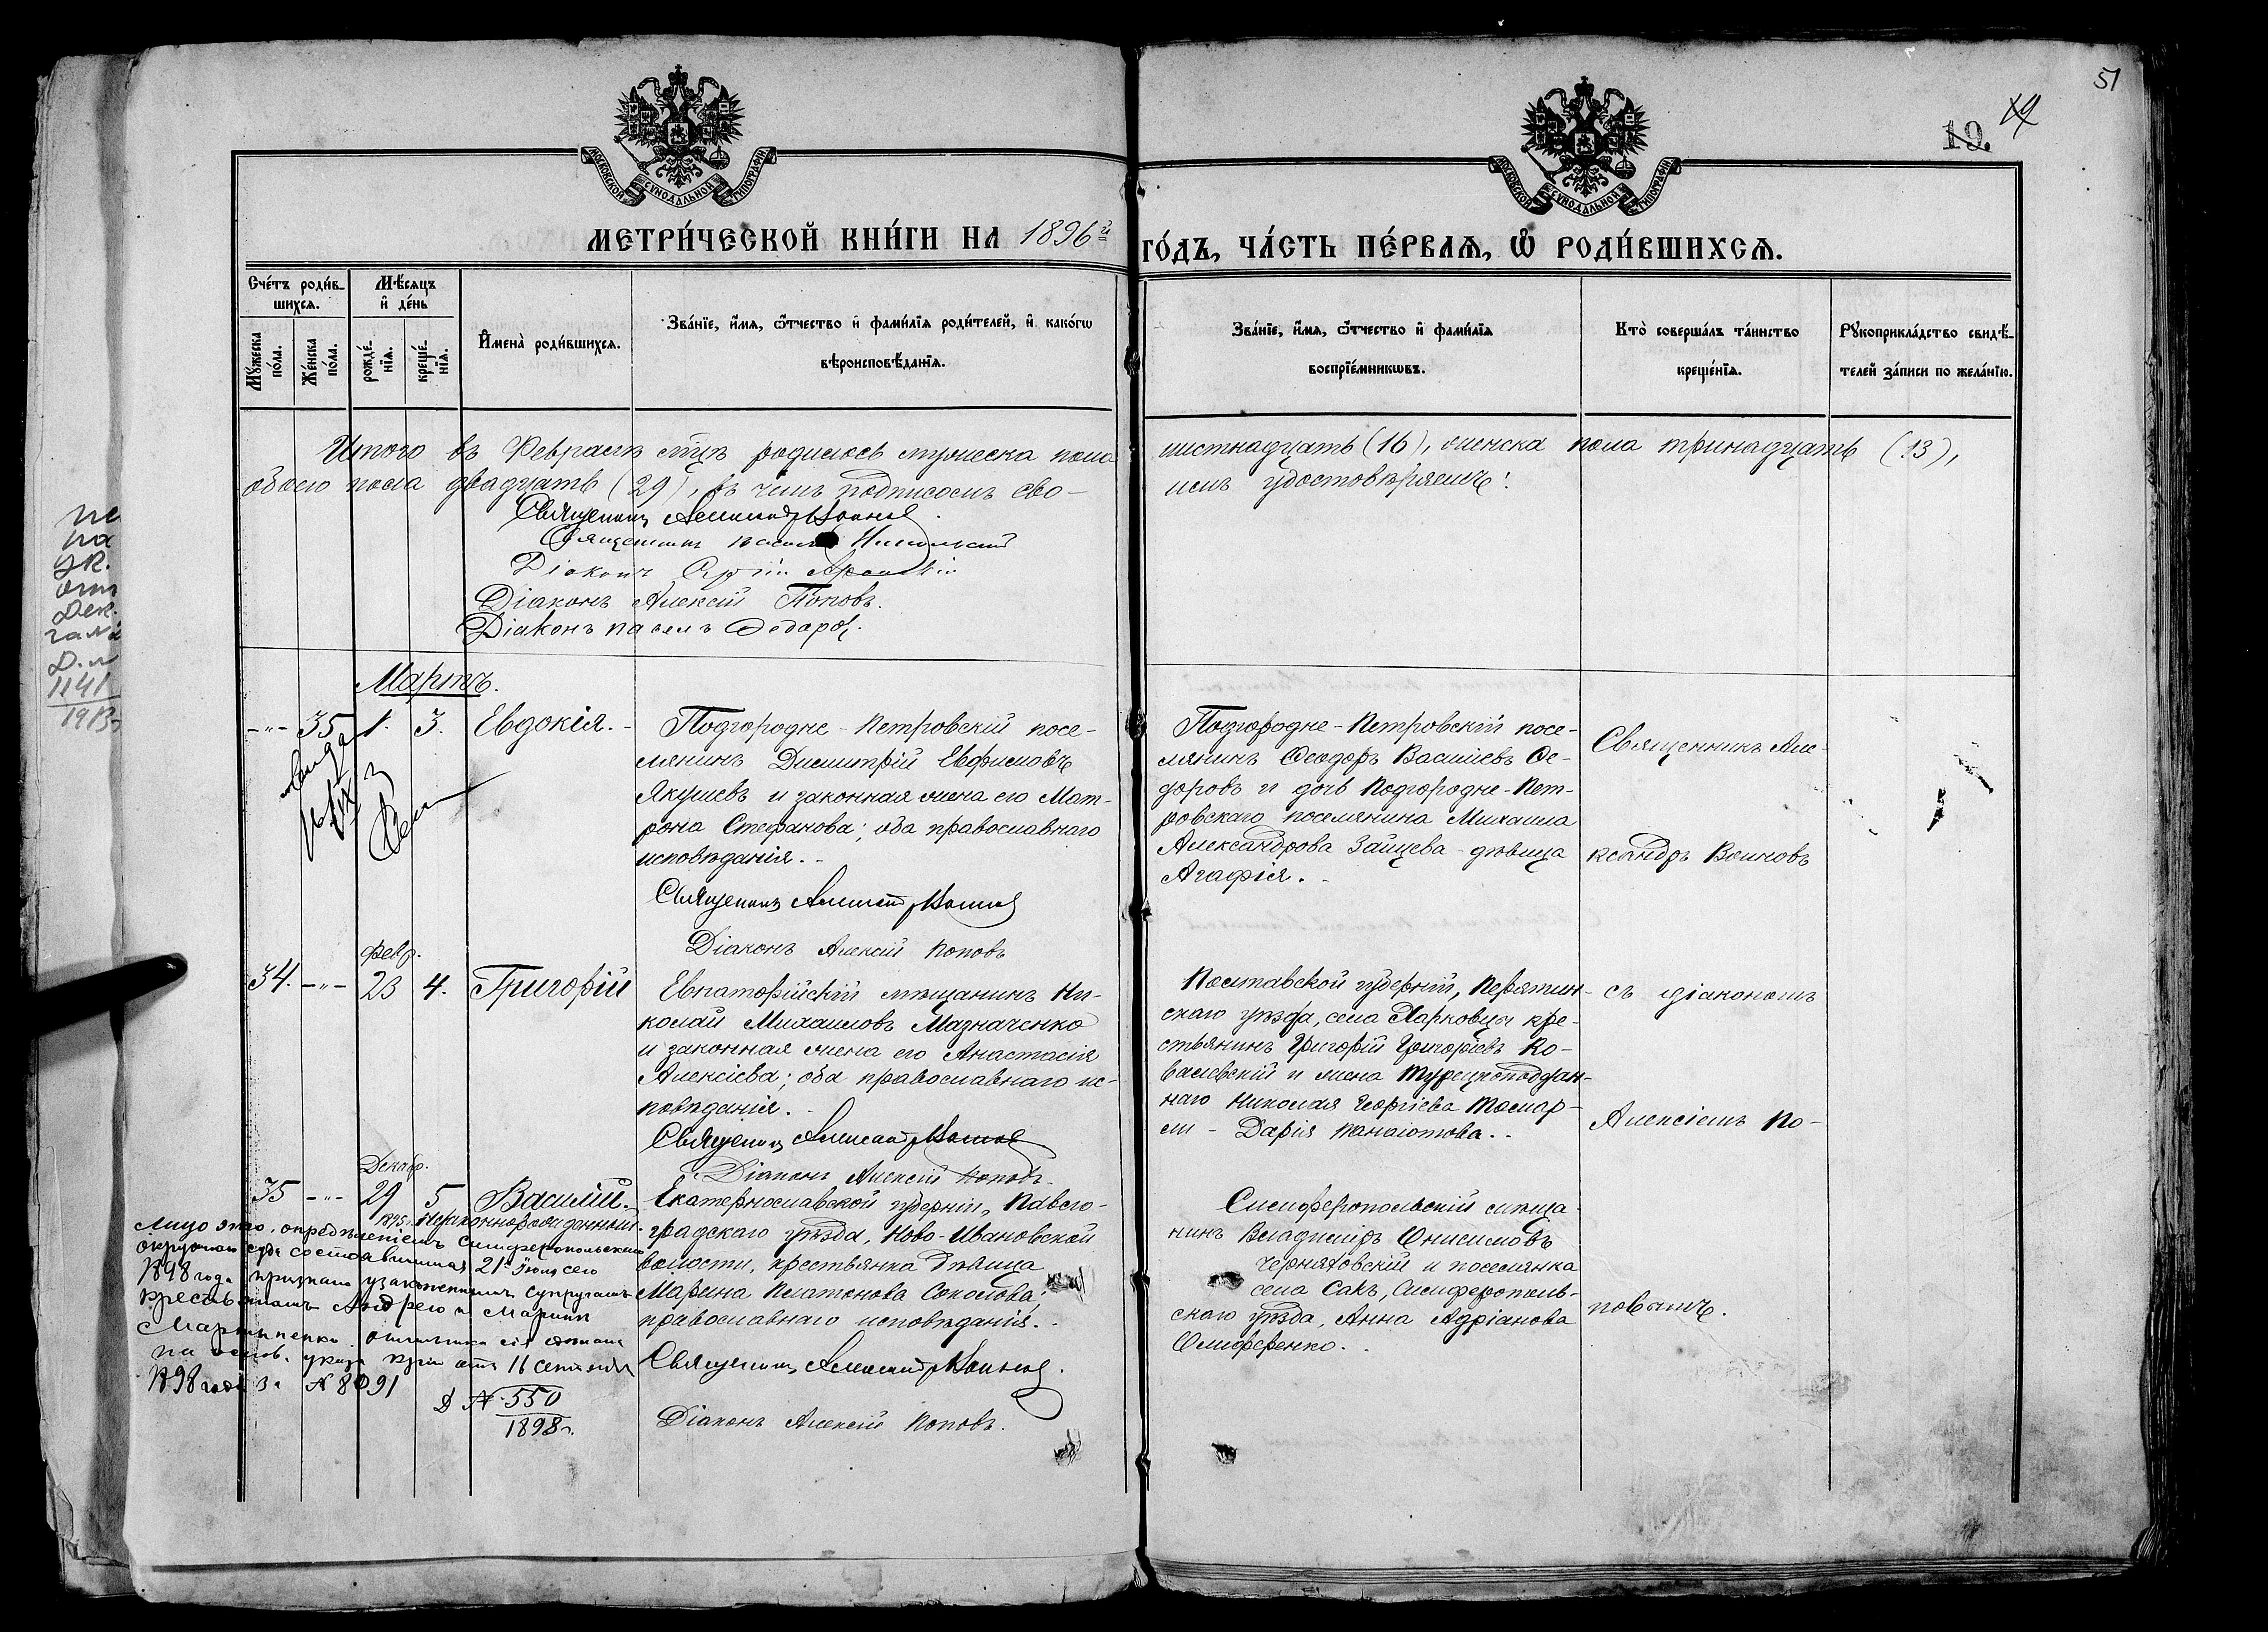 51
19.
19
МОСКОВСКОЙ СѴНОДАЛЬНОЙ ТИПОГРАФІИ
МОСКОВСКОЙ СѴНОДАЛЬНОЙ ТИПОГРАФІИ
МЕТРИ́ЧЕСКОЙ КНИ́ГИ НА 1896й
ГО́ДЪ, ЧА́СТЬ ПЕ́РВАѦ, Ѡ РОДИ́ВШИХСѦ.
Сче́тъ роди́в-
шихсѧ.
Мꙋ́жеска по́ла.
Же́нска по́ла.
Мѣ́сѧцъ
и҆ де́нь
рожде́-
нїѧ.
креще́-
нїѧ.
И҆мена̀ роди́вшихсѧ.
Зва́нїе, и҆́мѧ, ѻ҆́тчество и҆ фами́лїѧ роди́телей, и҆ како́гѡ
вѣроисповѣ́данїѧ.
Зва́нїе, и҆́мѧ, ѻ҆́тчество и҆ фами́лїѧ
воспрїе́мникѡвъ.
Кто̀ соверша́лъ та́инство
креще́нїѧ.
Рꙋкоприкла́дство свидѣ́-
телей за́писи по жела́нїю.
Итого въ Февралѣ мцѣ родилось мужеска пола
обоего пола двадцать (29), въ чемъ подписомъ сво-
шестнадцать (16), женска пола тринадцать (13),
имъ удостовѣряемъ:
Священникъ Александръ Воиновъ
Священникъ Никольский
Діаконъ
Діаконъ Алексій Поповъ.
Діаконъ Павелъ Ѳедоровъ.
Мартъ.
-"- 35 1. 3. Евдокія.-
Подгородне-Петровскій посе-
лянинъ Димитрій Евфимовъ
Якушевъ и законная жена его Мат-
рона Стефанова; оба православнаго
исповѣданія.-
Священникъ Александръ Воиновъ
Діаконъ Алексій Поповъ
Подгородне-Петровскій посе-
лянинъ Ѳеодоръ Васильевъ Ѳе-
доровъ и дочь Подгородне-Пет-
ровскаго поселянина Михаила
Александрова Зайцева - дѣвица
Агафія.-
Священникъ Але-
ксандръ Воиновъ
февр.
34. -"- 23 4. Григорій
Евпаторійскій мѣщанинъ Ни-
колай Михаиловъ Мазначенко
и законная жена его Анастасія
Алексіева; оба православнаго ис-
повѣданія.-
Священникъ Александръ Воиновъ
Діаконъ Алексій Поповъ.
Полтавской губерніи, Пирятин-
скаго уѣзда, села Харковцы кре-
стьянинъ Григорій Григоріевъ Ко-
валевскій и жена турецкоподдан-
наго Николая Георгіева
Дарія Панаіотова.-
съ діакономъ
Алексіемъ По-
повымъ.
Декабр.
35 -"- 29 5 Василій.
1895. Незаконнорожденный.
Екатеринославской губерніи, Павло-
градскаго уѣзда, Ново-Ивановской
волости, крестьянка дѣвица
Марина Платонова Соколова;
православнаго исповѣданія.-
Священникъ Александръ Воиновъ.
Діаконъ Алексій Поповъ.
Симферопольскій мѣща-
нинъ Владиміръ Онисимовъ
Черняховскій и поселянка
села Сакъ, Симферополь-
скаго уѣзда, Анна Адріанова
Олиференко.-
Лицо это, опредѣленіемъ Симферопольскаго
окружнаго суда состоявшимся 21 Іюня сего
1898 года признано узаконеннымъ супругами
крестьянами Андрею и Марины
Мартыненко, отмѣтка сія сдѣлана
на основ. указа отъ 16 сентября
1898 года за № 8091
Д № 550
1898 г.
1141
1913 г.